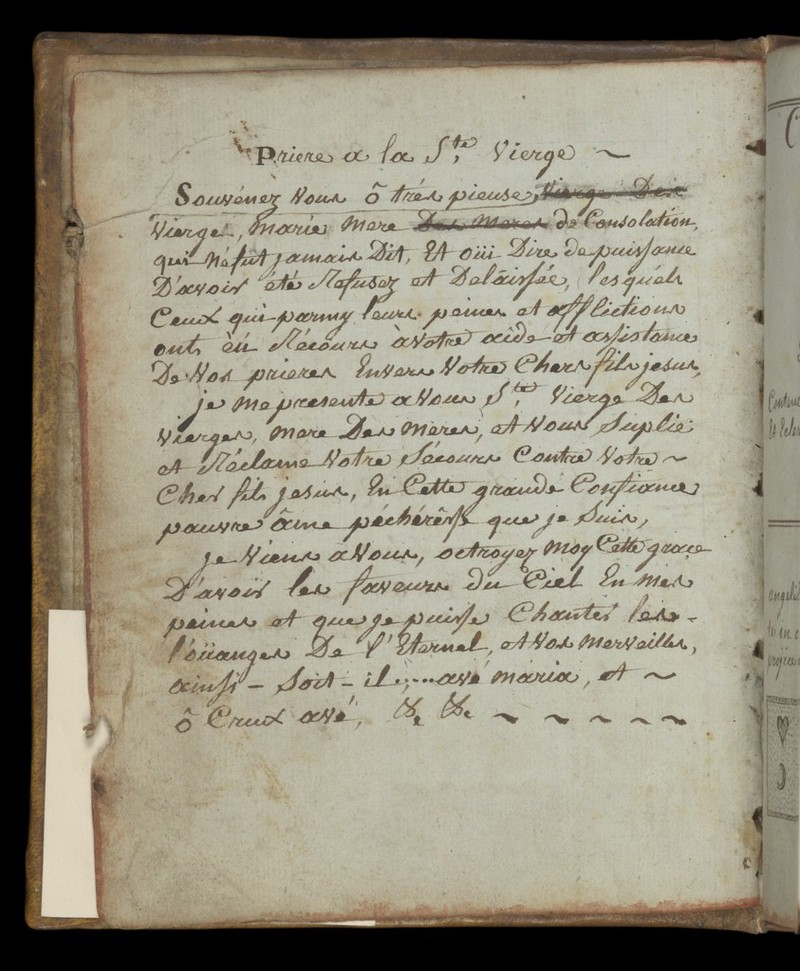 Priere a la S.te Vierge ~
Souvénez Vous ô trés pieuse, Vierge Des
Vierge, marie Mere Des Meres de Consolation,
qui Néfut jamais Dit, Et oüi Dire de puissance
D'avoir été Refusez et Delaissée, lesquéls
Ceux qui parmy leurs peines et afflictions
ont éü Récours à Votre aide et assistance
De Vos prieres Envers Votre Chers fils jesus,
je me presente a Vous S.te Vierge Des
Vierges, Mere Des Meres, et Vous Suplie
et Réclame Votre Sécours Contre Votre ~
Cher fils jesus, En Cette grande Confiance
pauvre âme péchérêsse que je Suis,
je Viens a Vous, octroyez moy Cette grace
D'avoir les faveurs du Ciel En mes
peines et que je puisse Chanter les -
l'oüanges De l'Eternel, et Vos Merveilles,
ainsi - Soit - il ;.... avé maria, et ~
ô Crux avé, &c &c ~ ~ ~ ~ ~
angeli